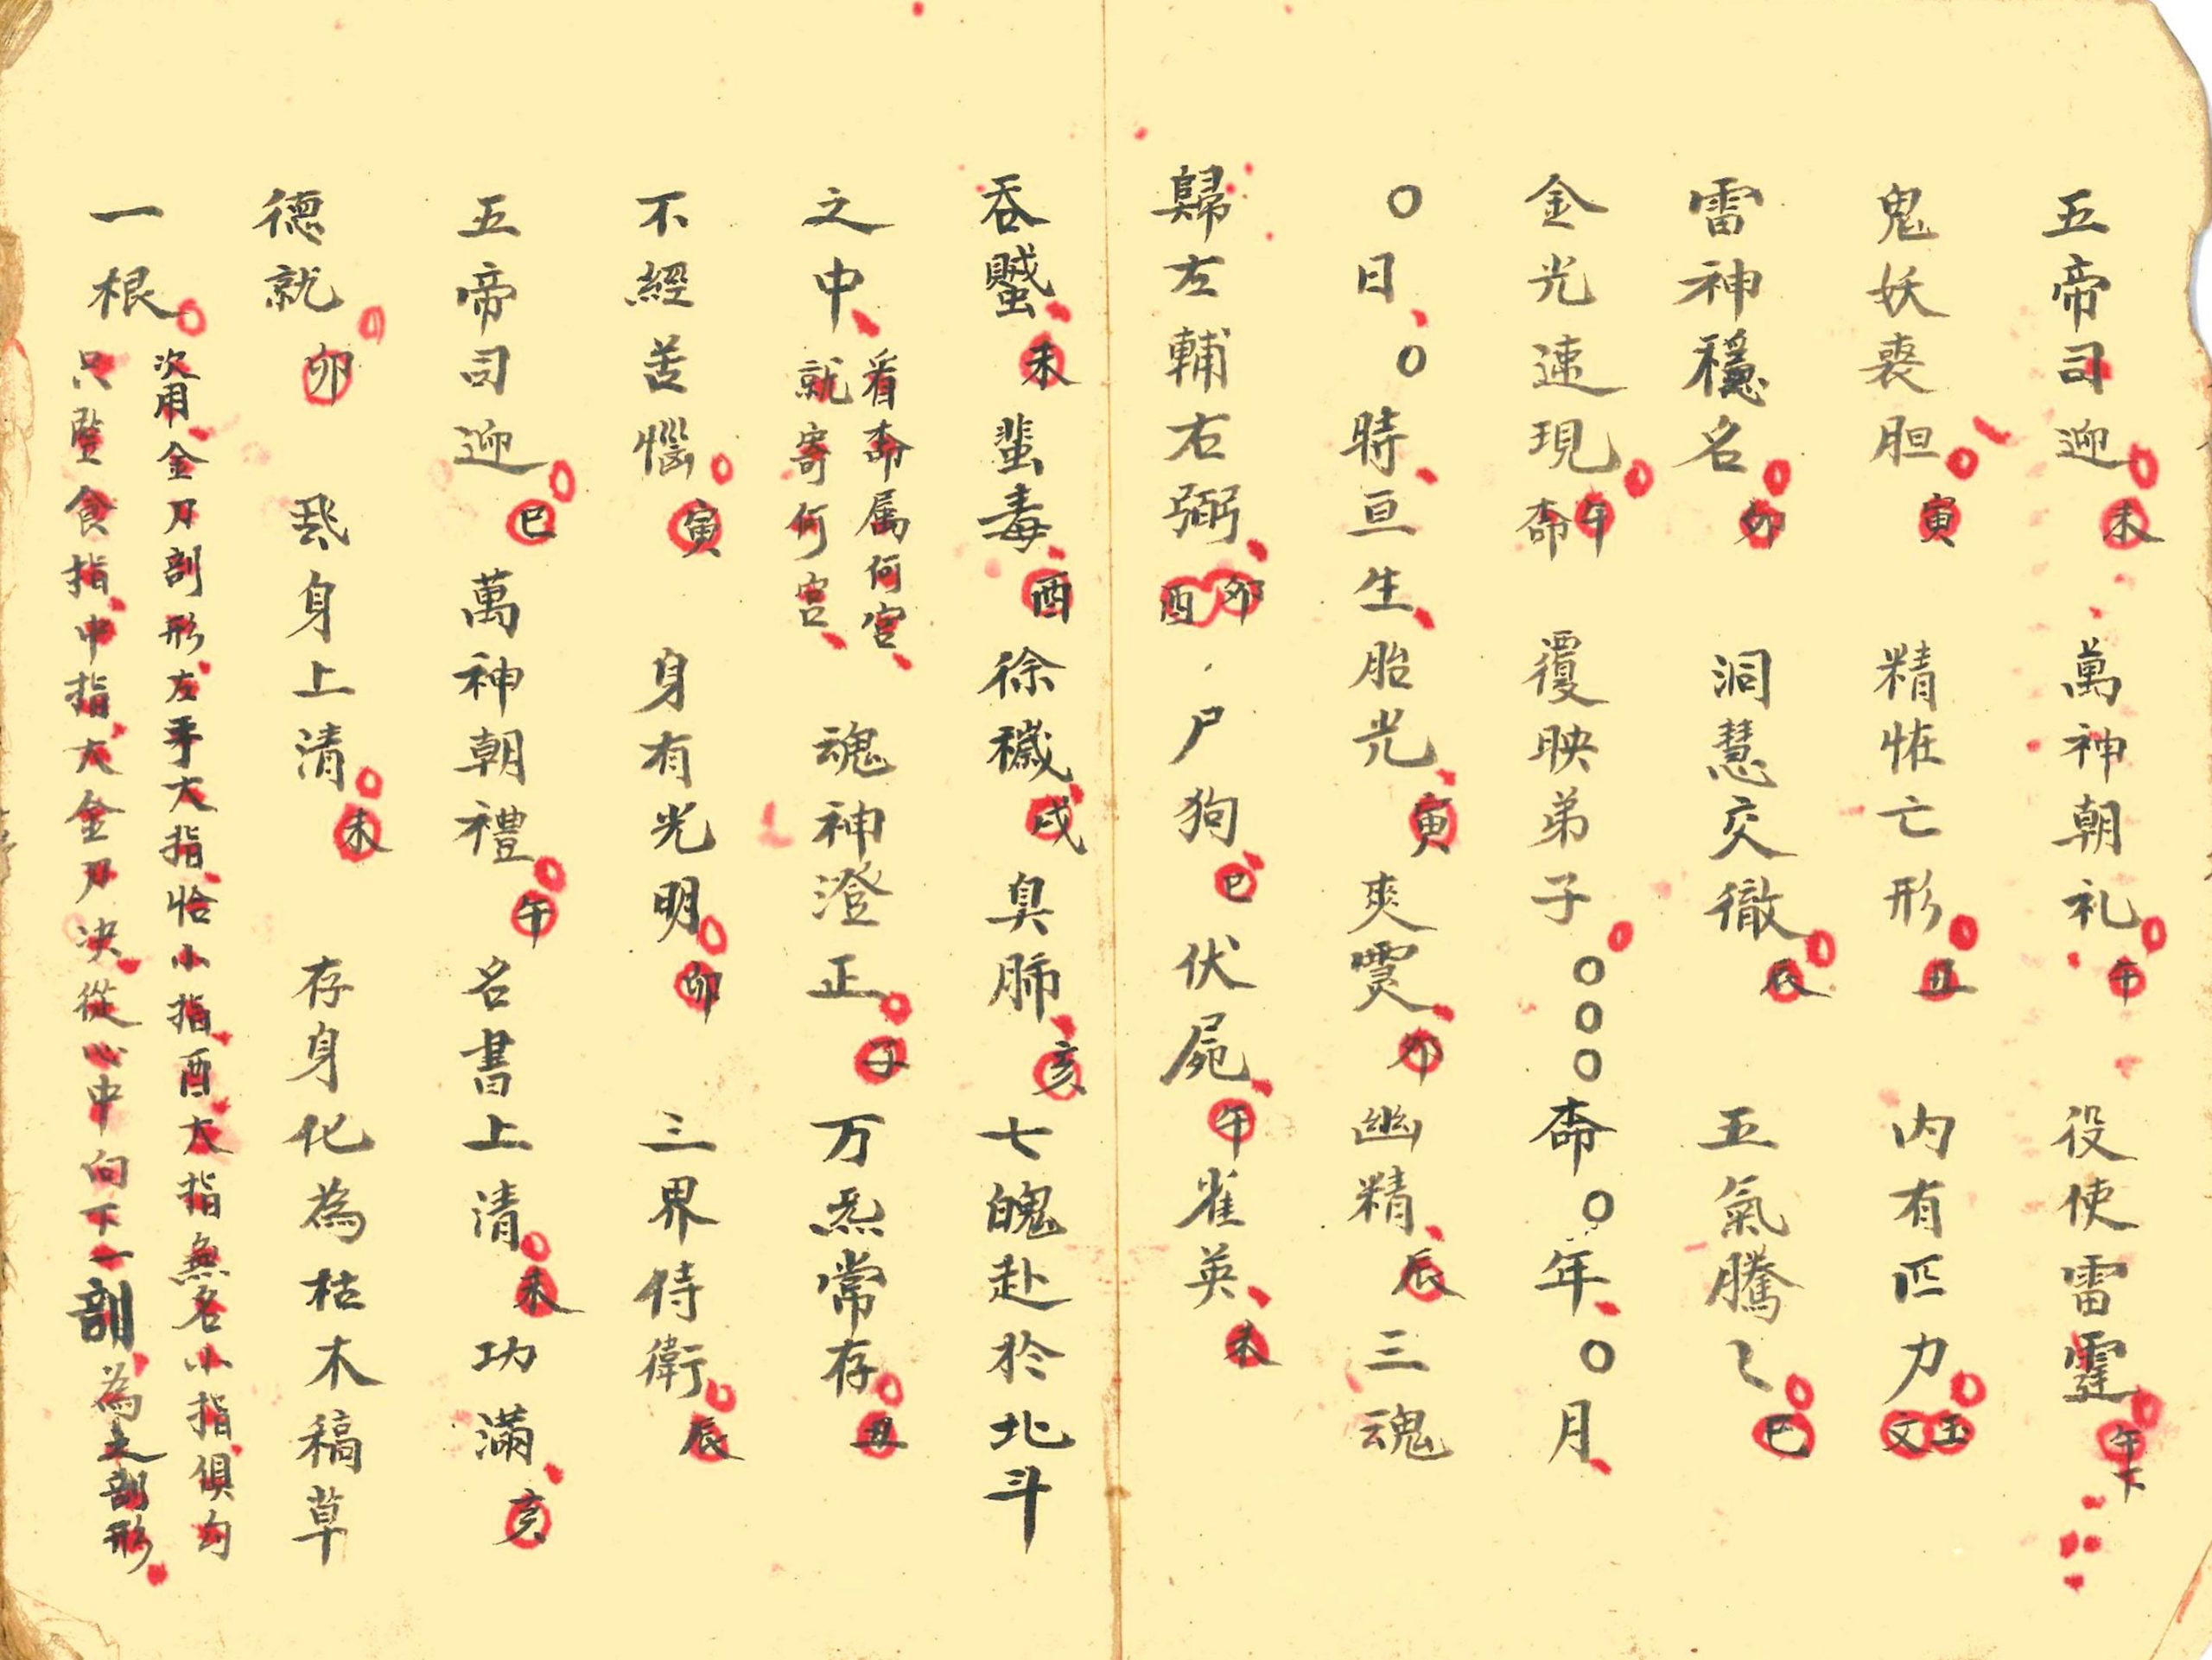 五帝司迎未萬神朝礼午役使雷霆午下
鬼妖喪胆寅精恠亡形丑内有匹力玉文
雷神穩名卯洞慧交徹辰五氣騰〻巳
金光速現午夲覆映弟子〇〇〇夲〇年〇月
〇日〇時亘生胎光寅爽霛卯幽精辰三魂
歸左輔右弼卯酉尸狗巳伏屍午雀英未
吞賊未蜚毒酉徐穢戌臭肺亥七魄赴於北斗
之中
看夲属何宫
就寄何宫
魂神澄正子万炁常存丑
不經苦惱寅身有光明卯三界侍衛辰
五帝司迎巳萬神朝禮午名書上清未功滿亥
德就卯飛身上清未存身化為枯木稿草
一根
次用金刀剖形左手大指恰小指酉大指無名小指俱勾
只竪食指中指大金刀决從心中向下一剖為之剖形